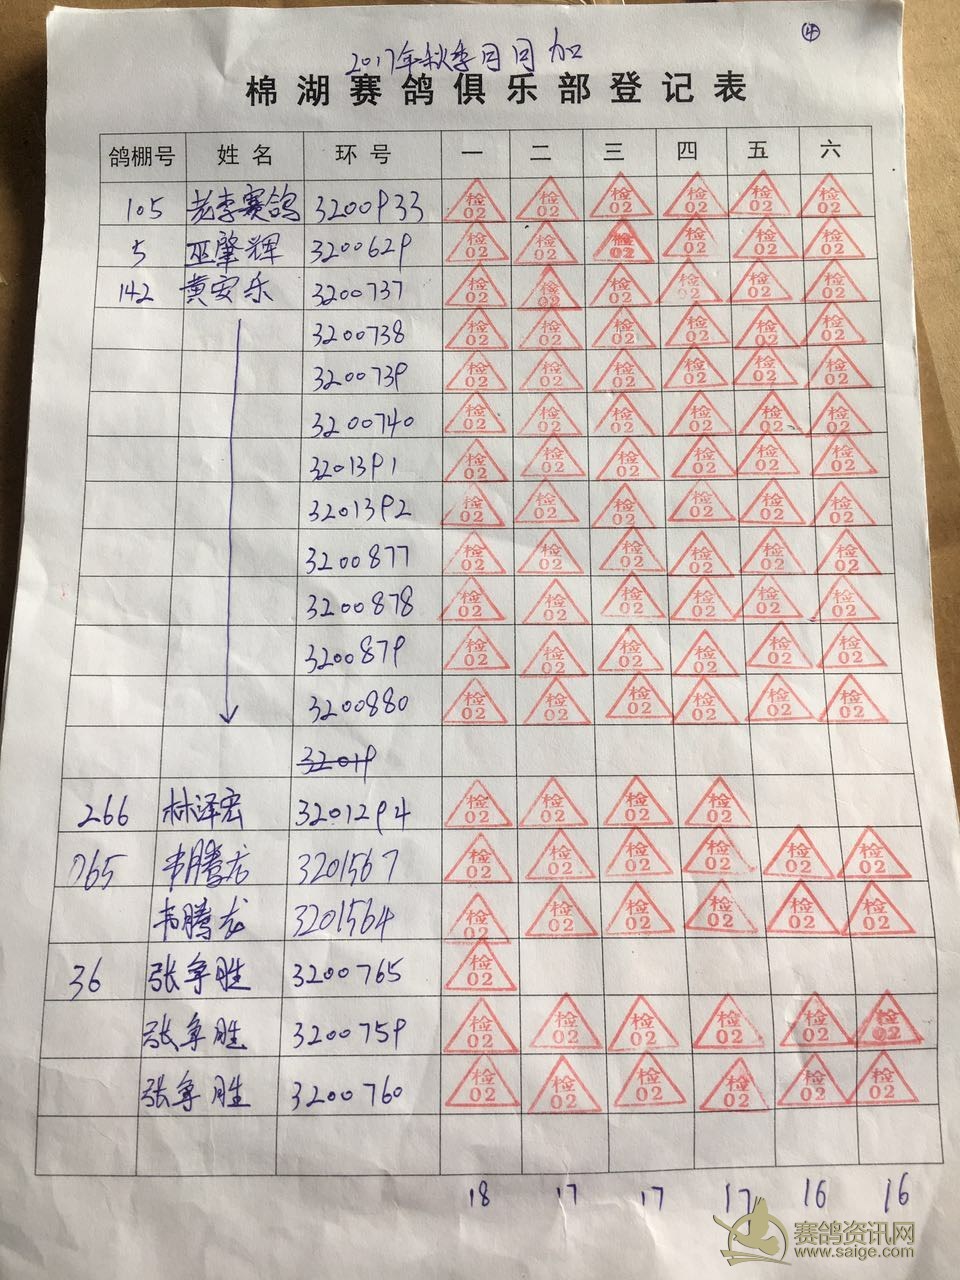 ④
2017年秋季月月加
棉湖赛鸽俱乐部登记表
鸽棚号 姓名 环号 一 二 三 四 五 六
105 老李赛鸽 3200933 检02 检02 检02 检02 检02 检02
5 巫肇辉 3200629 检02 检02 检02 检02 检02 检02
142 黄安乐 3200737 检02 检02 检02 检02 检02 检02
3200738 检02 检02 检02 检02 检02 检02
3200739 检02 检02 检02 检02 检02 检02
3200740 检02 检02 检02 检02 检02 检02
3201391 检02 检02 检02 检02 检02 检02
3201392 检02 检02 检02 检02 检02 检02
3200877 检02 检02 检02 检02 检02 检02
3200878 检02 检02 检02 检02 检02 检02
3200879 检02 检02 检02 检02 检02 检02
3200880 检02 检02 检02 检02 检02 检02
32019
266 林泽宏 3201294 检02 检02 检02 检02
065 韦腾龙 3201567 检02 检02 检02 检02 检02 检02
韦腾龙 3201564 检02 检02 检02 检02 检02 检02
36 张争胜 3200765 检02
张争胜 3200759 检02 检02 检02 检02 检02 检02
张争胜 3200760 检02 检02 检02 检02 检02 检02
18 17 17 17 16 16
赛鸽资讯网
www.saige.com